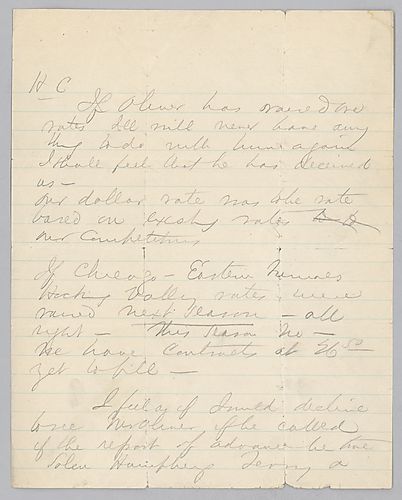 H C
If Oliver has raised our
rates Ill will never have any
thing to do with him again
I shall feel that he has deceived
us —
our dollar rate was the rate
based on existing rates
our Competitors
If Chicago — Eastern
Hocking Valley rates were
raised next season — all
right — This season No —
We have Contracts at
yet to fill —
I feel as if I would decline
to see Mr Oliver if he called
if the report of advance be true
Humphreys a